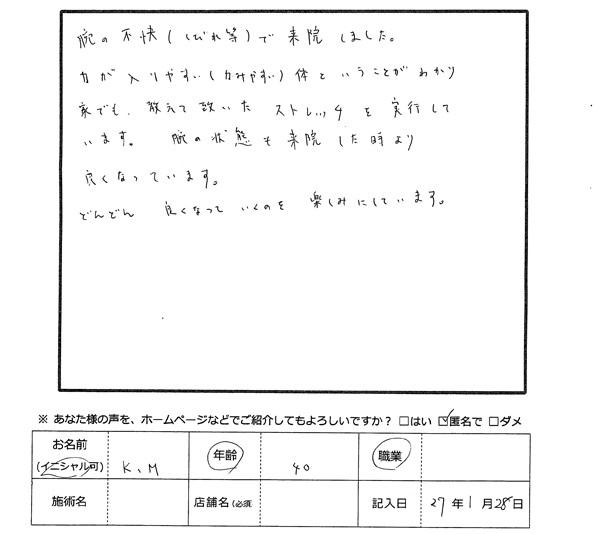 腕の不快(しびれ等)で来院しました。
力が入りやすい(力みやすい)体ということがわかり
家でも、教えて頂いたストレッチを実行して
います。 腕の状態も来院した時より
良くなっています。
どんどん 良くなっていくのを 楽しみにしています。
※ あなた様の声を、ホームページなどでご紹介してもよろしいですか? □はい ☑匿名で □ダメ
お名前 (イニシャル可) K、M 年齢 40 職業
施術名 店舗名(必須 記入日 27年1月28日